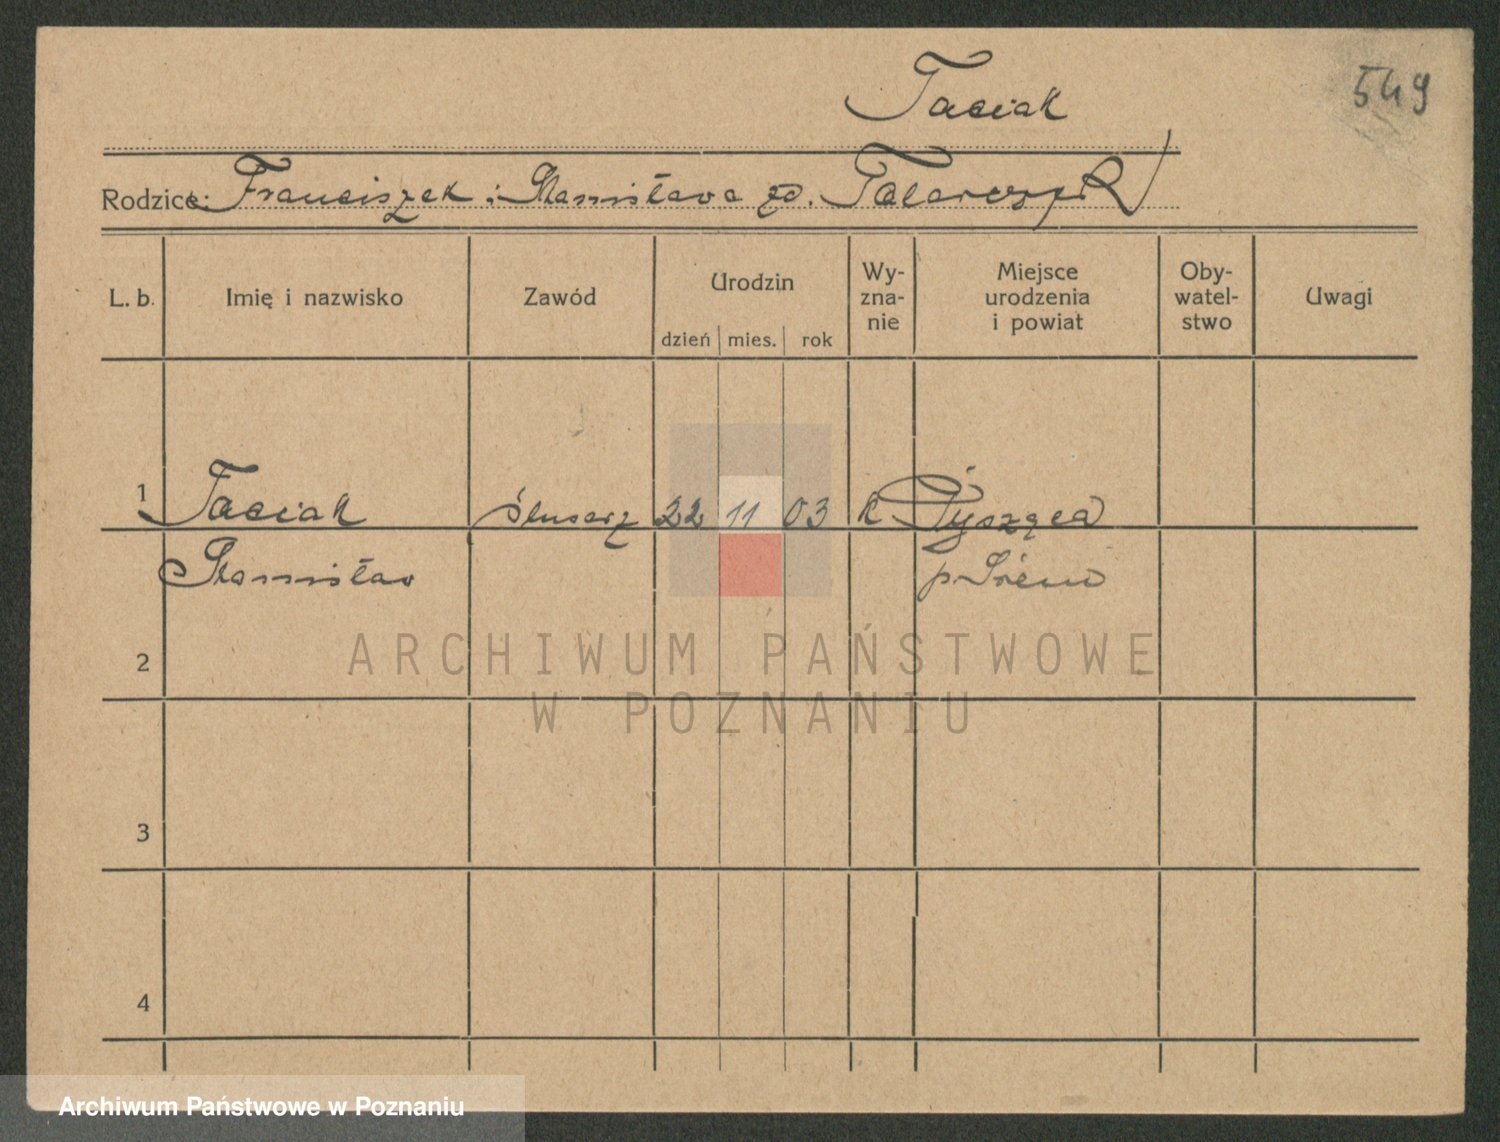 Taciak
549
Rodzice: Franciszek i Stanisława zd. Talarczyk
L. b. Imię i nazwisko Zawód Urodzin dzień mies. rok Wy-zna-nie Miejsce urodzenia i powiat Oby-watel-stwo Uwagi
1 Taciak ślusarz 22 11 03 k Pysząca
Stanisław p. Śrem
2
ARCHIWUM PAŃSTWOWE
W POZNANIU
3
4
Archiwum Państwowe w Poznaniu